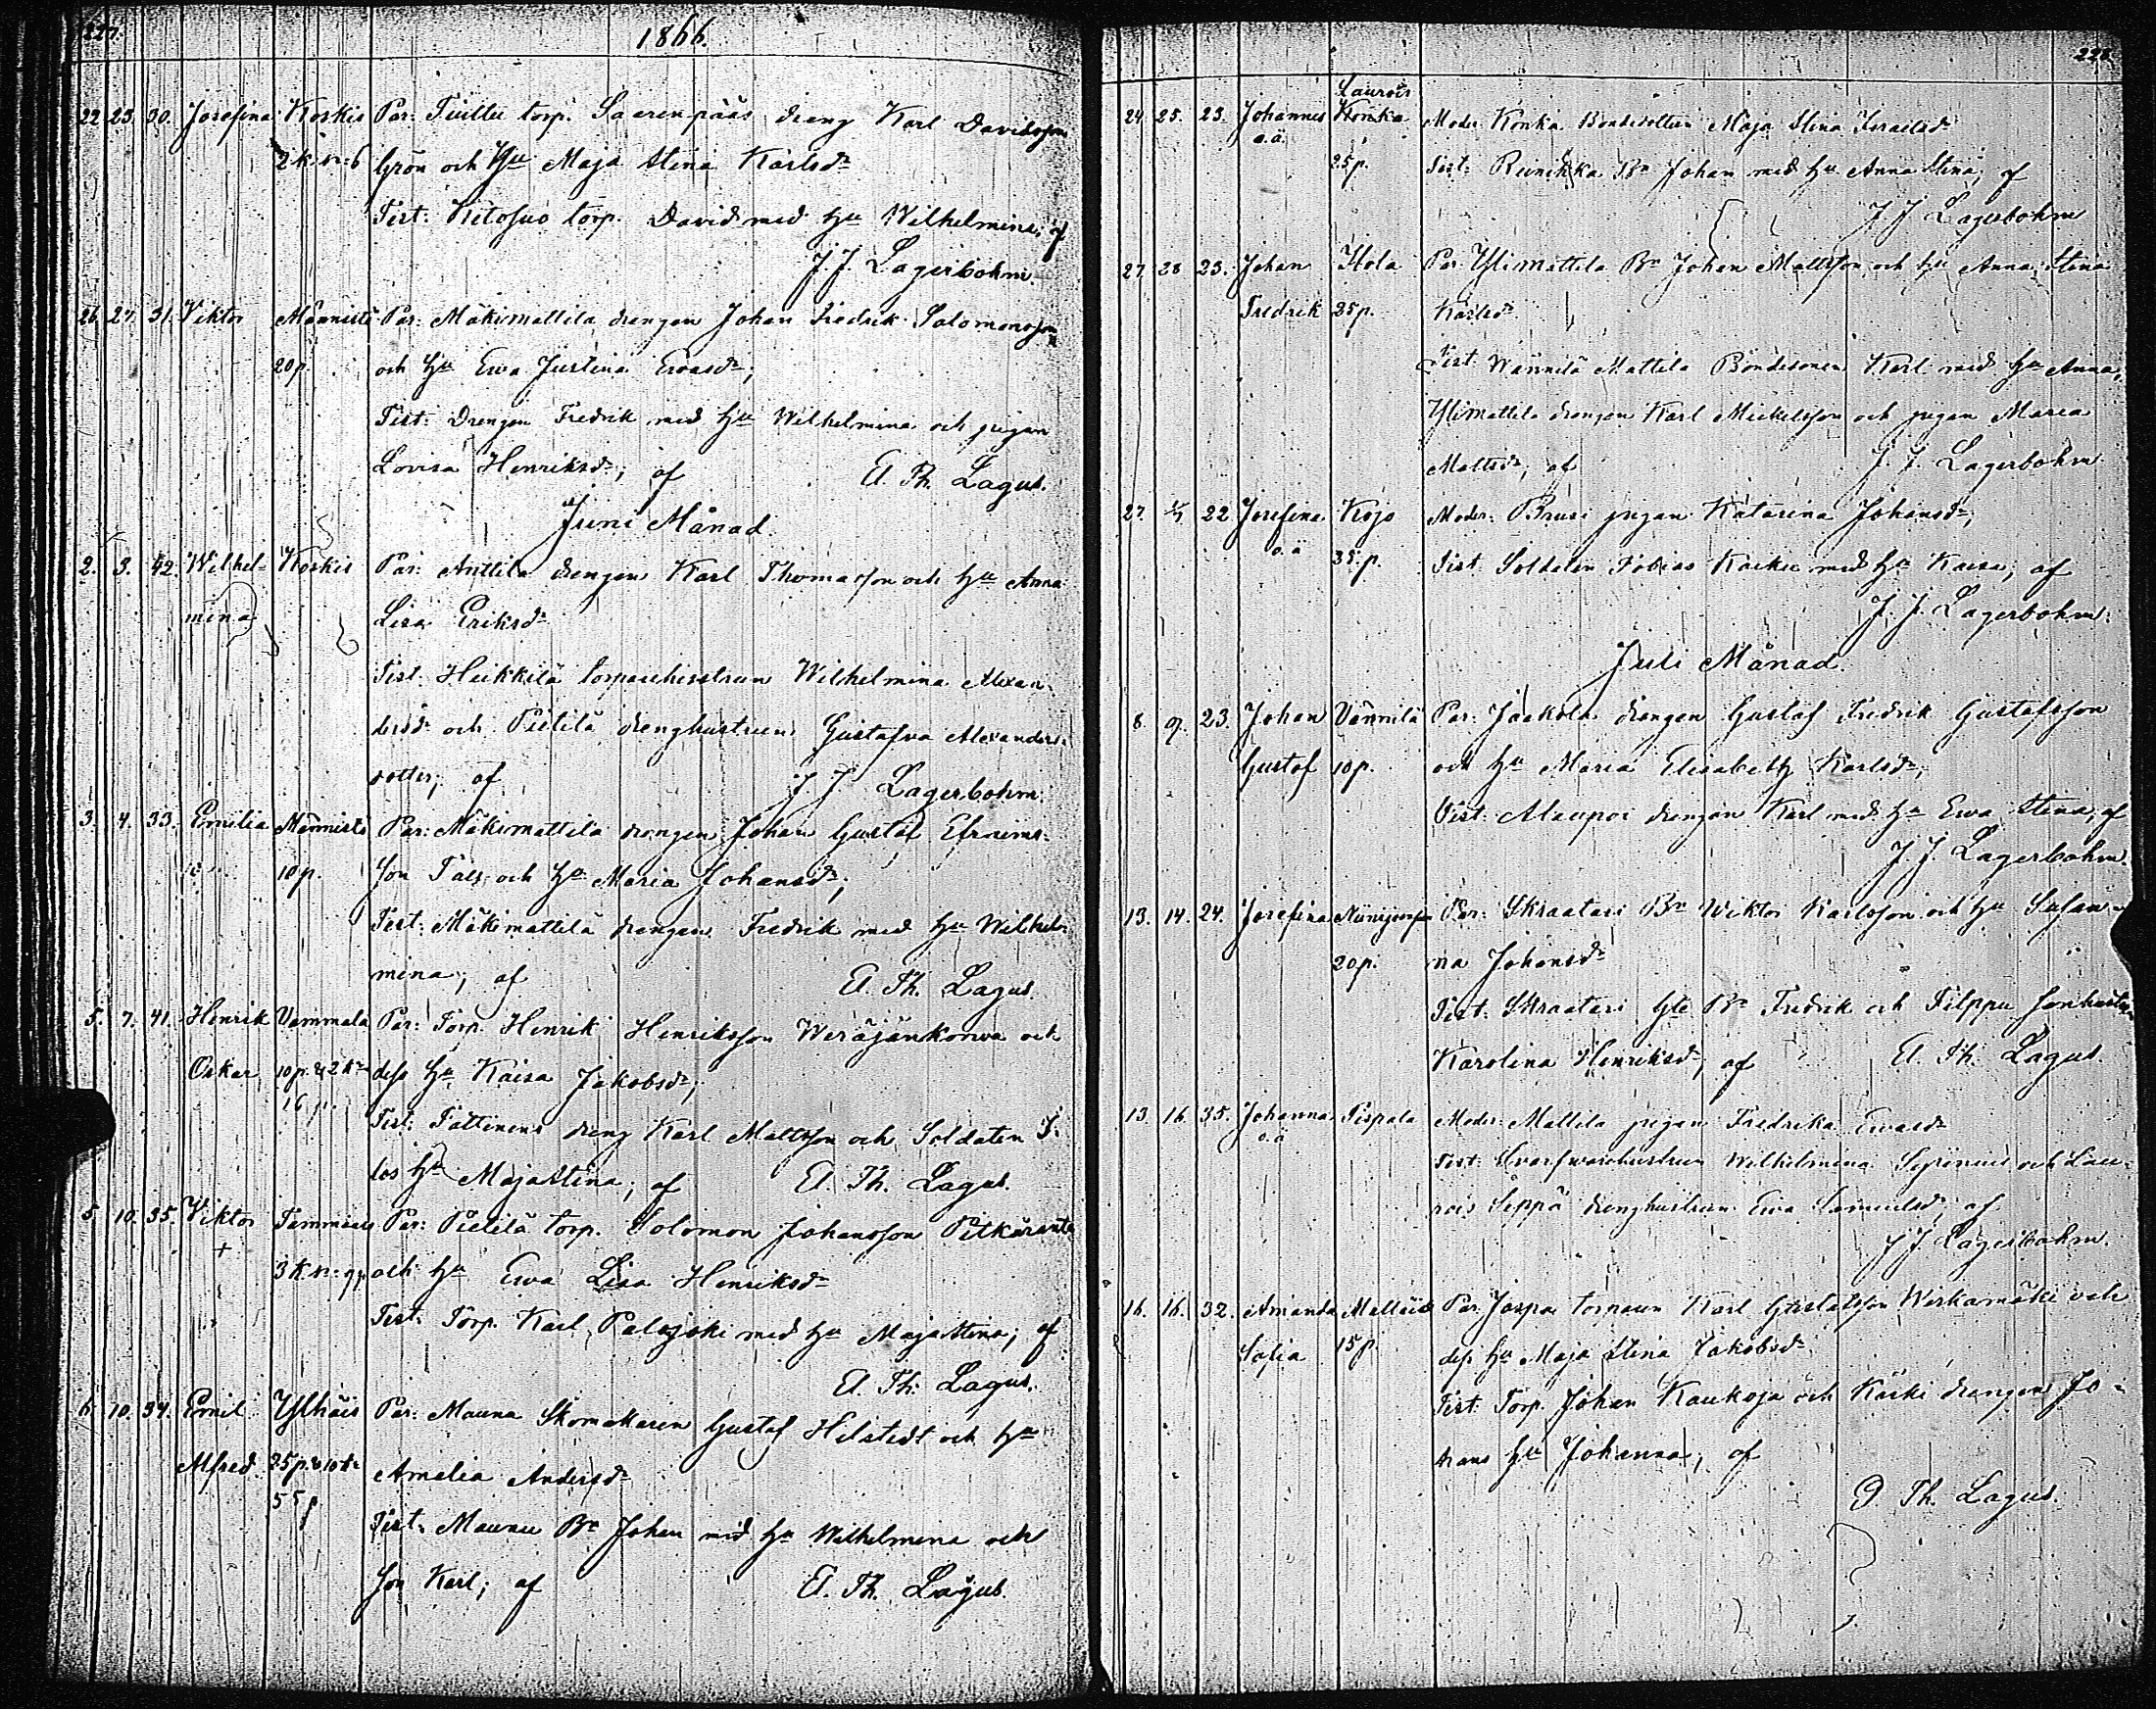 227.
1866.
22. 23. 30. Josefina Koskis Par: Tiultu torp. Saarenpääs dräng Karl Davidsson
2 k. Grön och Hu Maja Stina Karlsdr
Test: Kitosuo torp. David med hu Wilhelmina; af
J. J. Lagerbohm.
26. 27. 31. Viktor Männistö Par: Mäkimattila drengen Johan Fredrik Salomonsson
20 p. och hu Ewa Justina Ewasdr;
Test: Drengen Fredrik med hu Wilhelmina och pigan
Lovisa Henriksdr; af A. Th. Lagus.
Juni Månad
2. 3. 42. Wilhel- Koskis Par: Anttila drengen Karl Thomasson och hu Anna
mina Lisa Eriksdr
Test: Heikkilä torparehustrun Wilhelmina Alexan-
dersdr och Pietilä drenghustrun Gustafva Alexanders-
dotter; af J. J. Lagerbohm.
3. 4. 33. Emilia Männistö Par: Mäkimattila drengen Johan Gustaf Efraims-
10 p. son och hu Maria Johansdr;
Test: Mäkimattila drengen Fredrik med hu Wilhel-
mina; af A. Th. Lagus.
5. 7. 41. Henrik Vammala Par: Torp. Henrik Henriksson Weräjänkorwa och
Oskar 10 p. & 2 k. dess hu Kaisa Jakobsdr;
16 p.
Test: Tattinens dreng Karl Mattsson och Soldaten
hu Maja Stina; af A. Th. Lagus.
5. 10. 35. Viktor Tammiais Par: Pietilä torp. Salomon Johansson Pitkäranta
+
3 k. och hu Ewa Lisa Henriksdr
Test: Torp. Karl Palojoki med hu Maja Stina; af
A. Th. Lagus.
6. 10. 34. Emil Ylhäis Par: Mauna Skomakaren Gustaf Helstedt och hu
Alfred 25 p. & 10 k. Amalia Andersdr
55 p.
Test: Maunu Bn Johan med hu Wilhelmina och
son Karl; af A. Th. Lagus.
228.
Laurois
24. 25. 23. Johannes Konka Moder Konka Bondedottren Maja Stina Israelsdr
o.ä. 25 p. Test: Reinikka Bn Johan med hu Anna Stina; af
J J Lagerbohm
27. 28 23. Johan Ytola Par: Ylimattila Bn Johan Mattsson och hu Anna Stina
Fredrik 25 p. Karlsdr
Test Wännilä Mattila Bondesonen Karl med hu Anna,
Ylimattila drengen Karl Mickelsson och pigan Maria
Mattsdr; af J. J. Lagerbohm
27. 22 Josefina Kojo Moder: Brusi pigan Katarina Johansdr;
o.ä 35 p. Test Soldaten Tobias med hu Kaisa; af
J. J. Lagerbohm.
Juli Månad
8. 9. 23. Johan Vännilä Par: Jaakola drengen Gustaf Fredrik Gustafsson
Gustaf 10 p. och hu Maria Elisabeth Karlsdr;
Test: drengen Karl med hu Ewa Stina; af
J. J. Lagerbohm
13. 14. 24. Josefina Par: Skraatari Bn Wiktor Karlsson och hu Susan-
20 p. na Johansdr
Test: Skraatari Gte Bn Fredrik och Filppu
Karolina Henriksdr; af A. Th. Lagus.
13 16 35. Johanna Pispala Moder: Mattila pigan Fredrika Ewasdr
o.ä
Test: Wilhelmina och Lau-
rois Seppä drenghustrun Ewa Samuelsdr; af
J J. Lagerbohm.
16. 16. 32. Amanda Mattais Par: Jaspoi torparen Karl Gustafsson Werkamäki och
Sofia 15 p. dess hu Maja Stina Jakobsdr
Test: Torp. Johan Kaukoja och Käski drengen Jo-
hans hu Johanna; af
A. Th. Lagus.